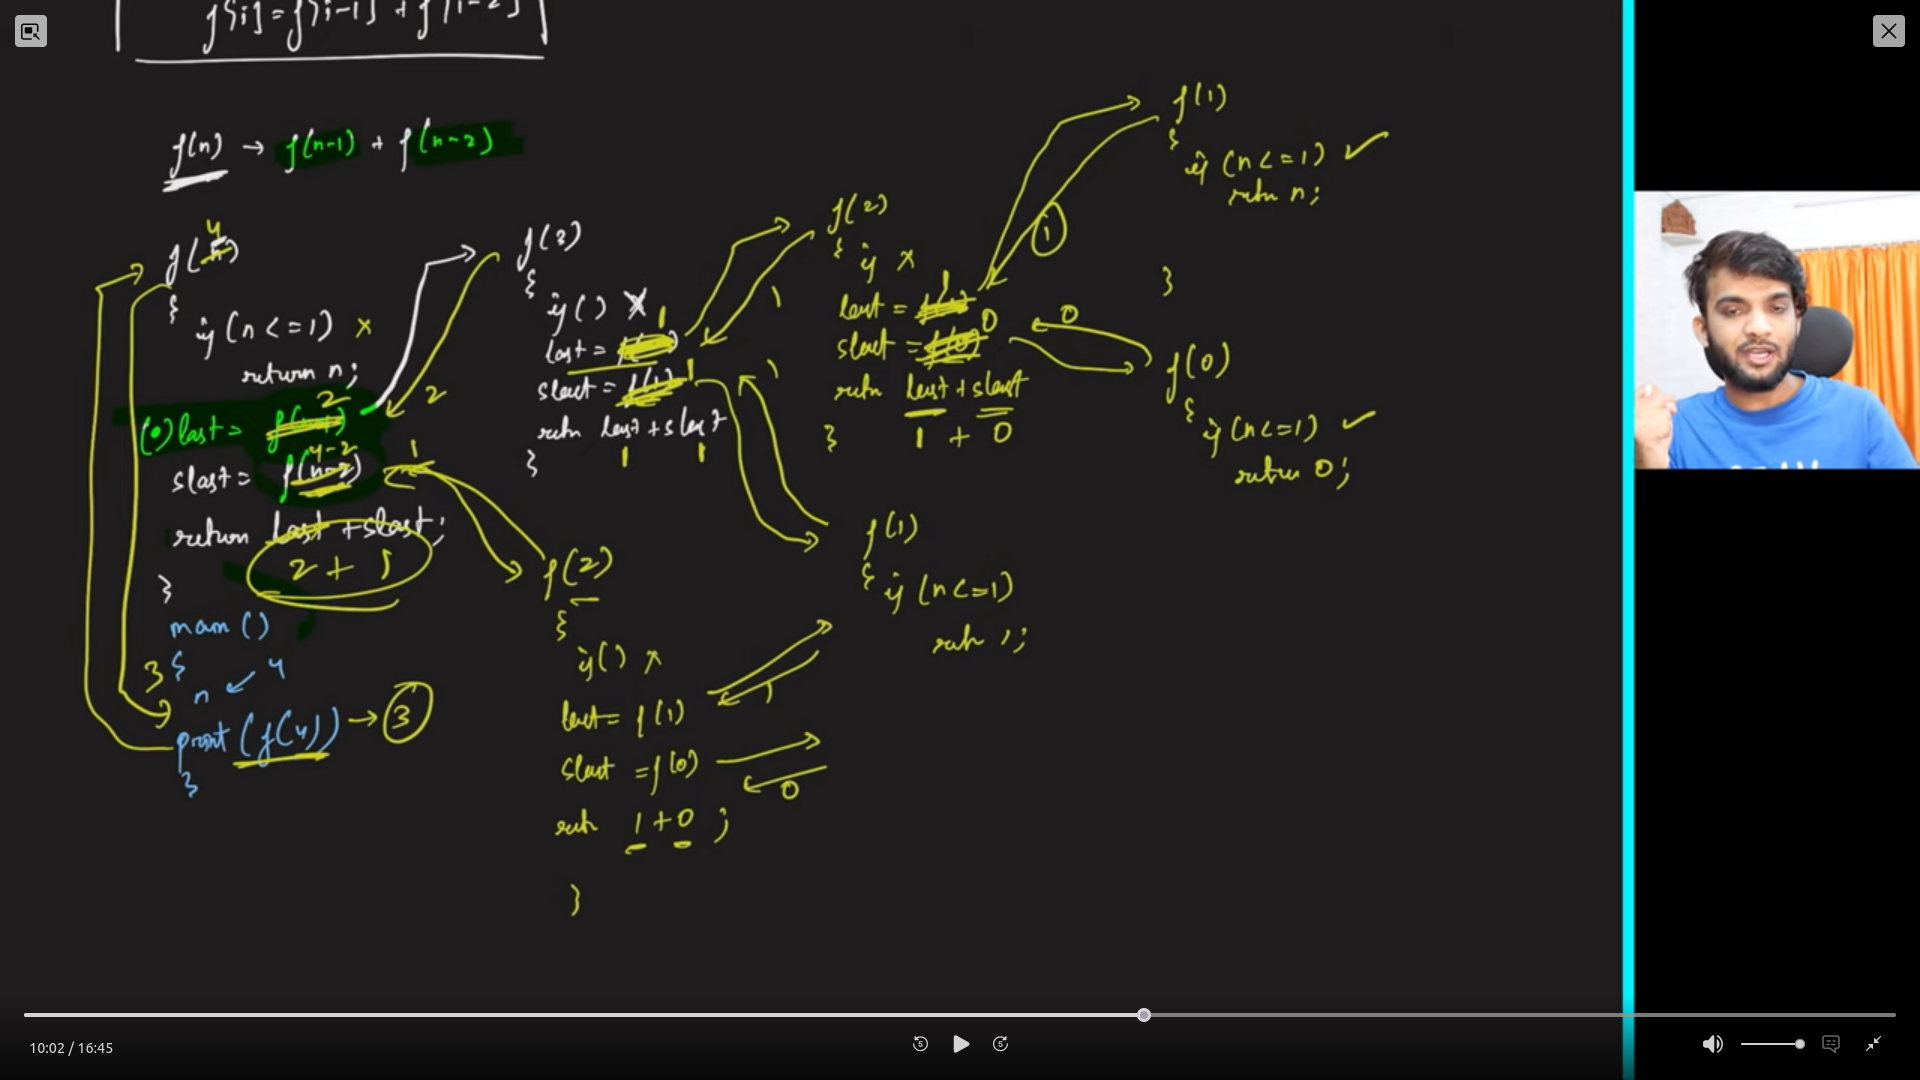 f[i] = f[i-1] + f[i-2]
f(n) → f(n-1) + f(n-2)
4
f(n)
{
if (n <= 1) x
return n;
2
(•) last = f(n-1)
4-2
slast = f(n-2)
return last + slast;
2 + 1
}
main ()
{
n ↙ 4
print (f(4)) → 3
}
3
2
1
f(3)
{
if () x
1
last =
slast = f(1) 1
retn last + slast
1 1
}
1
1
f(2)
{ if x
1
last = f(1)
slast = f(0) 0
retn last + slast
} 1 + 0
1
f(1)
{
if (n <= 1) ✓
retn n;
}
0
f(0)
{
if (n <= 1) ✓
return 0;
f(1)
{ if (n <= 1)
retn 1;
f(2)
{
if () x
last = f(1)
1
slast = f(0)
0
retn 1 + 0 ;
}
10:02 / 16:45
5
5